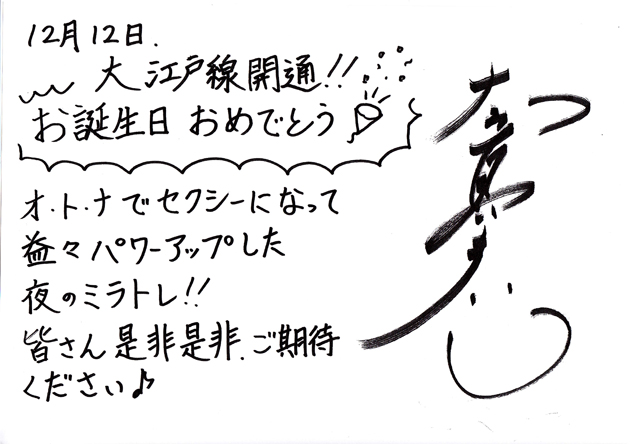 12月12日.
大江戸線開通!!
お誕生日おめでとう
オ・ト・ナでセクシーになって
益々パワーアップした
夜のミラトレ!!
皆さん是非是非、ご期待
ください♪